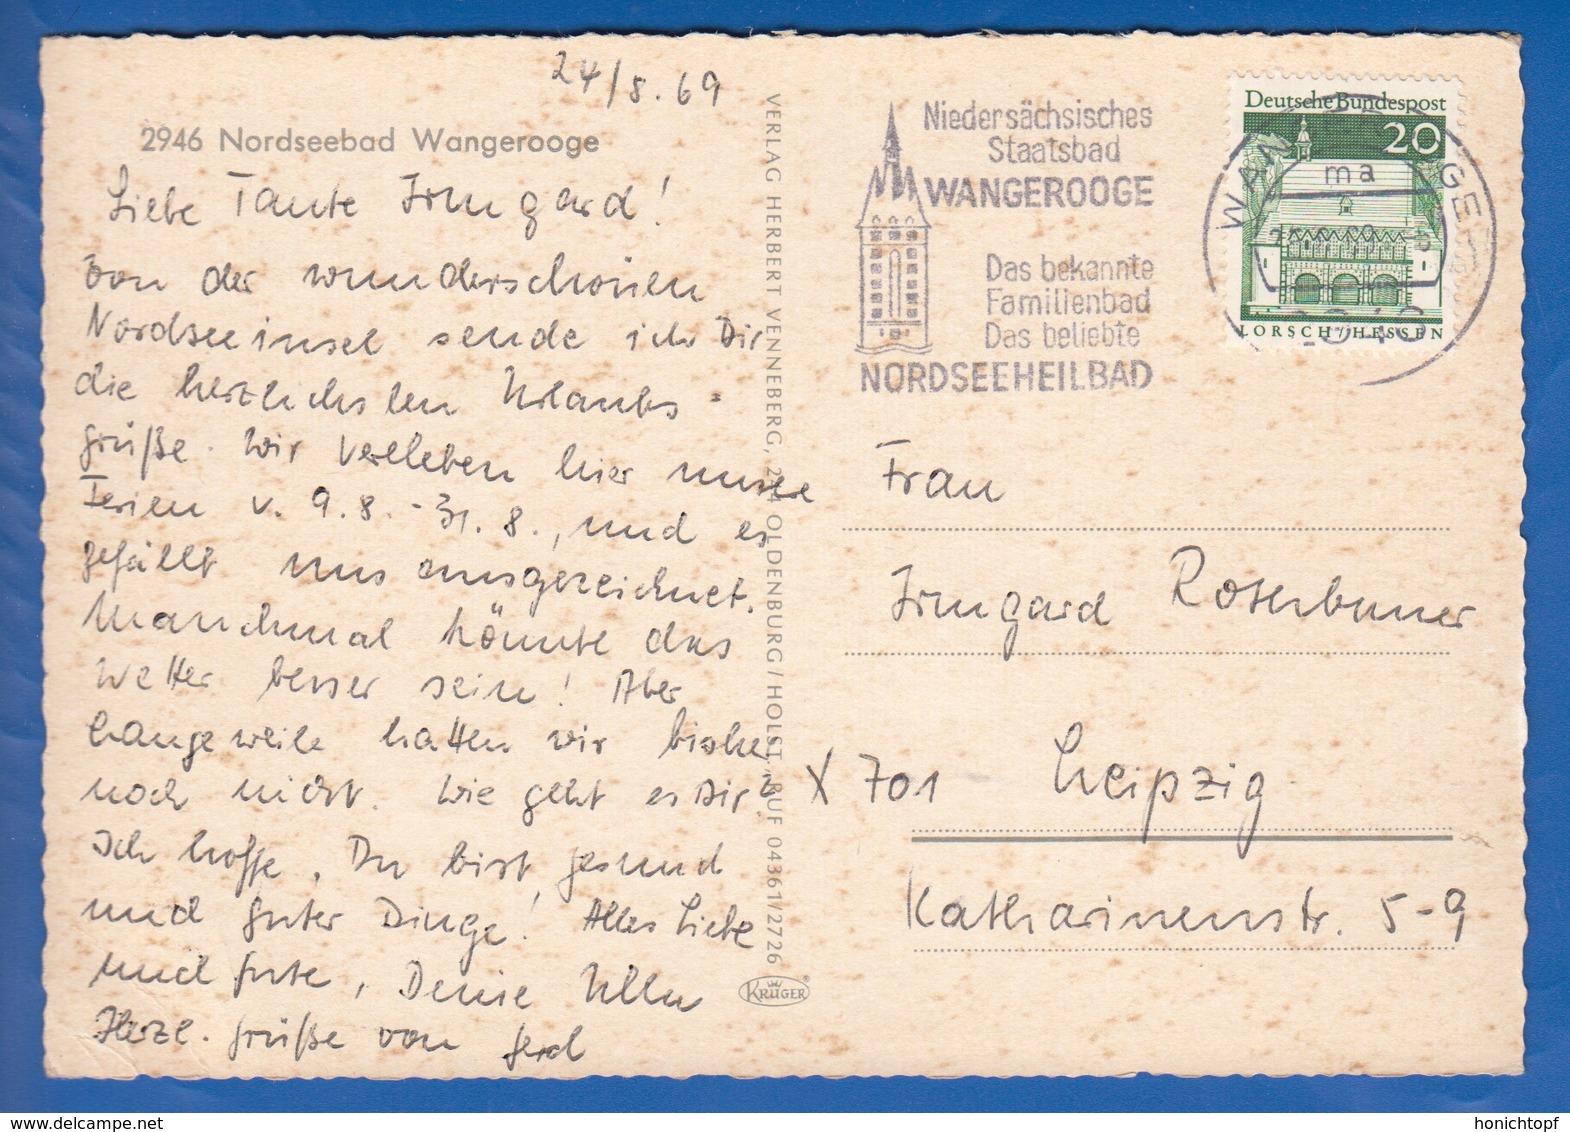 24/8.69
2946 Nordseebad Wangerooge
Liebe Tante Irmgard!
Von der wunderschönen
Nordseeinsel sende ich Dir
die herzlichsten Urlaubs-
grüße. Wir verleben hier unsere
Ferien v. 9.8.-31.8., und es
gefällt uns ausgezeichnet.
Manchmal könnte das
Wetter besser sein! Aber
Langeweile hatten wir bisher
noch nicht. Wie geht es Dir?
Ich hoffe, Du bist gesund
und guter Dinge! Alles Liebe
und Gute, Deine Ulla
Herzl. Grüße von Gerd
VERLAG HERBERT VENNEBERG, 244 OLDENBURG/HOLST., RUF 04361/2726
KRÜGER
Niedersächsisches
Staatsbad
WANGEROOGE
Das bekannte
Familienbad
Das beliebte
NORDSEEHEILBAD
WANGEROOGE
ma
Deutsche Bundespost
20
LORSCH/HESSEN
Frau
Irmgard
X 701 Leipzig
Katharinenstr. 5-9
delcampe.net
honichtopf